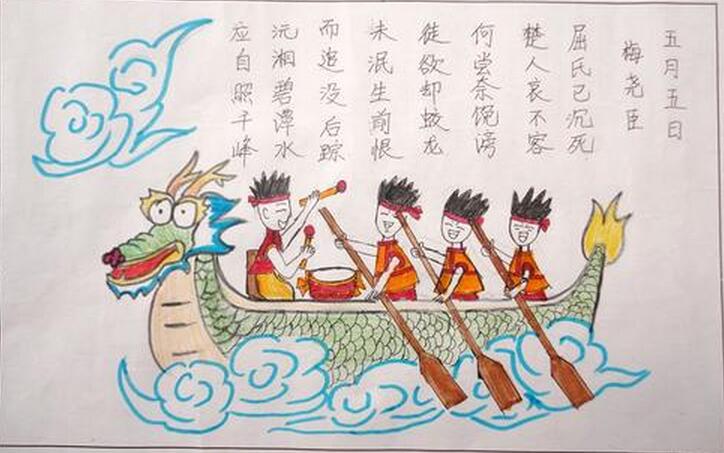 五月五日
梅尧臣
屈氏已沉死
楚人哀不容
何尝奈馋谤
徒欲却蛟龙
未泯生前恨
而追没后踪
沅湘碧潭水
应自照千峰